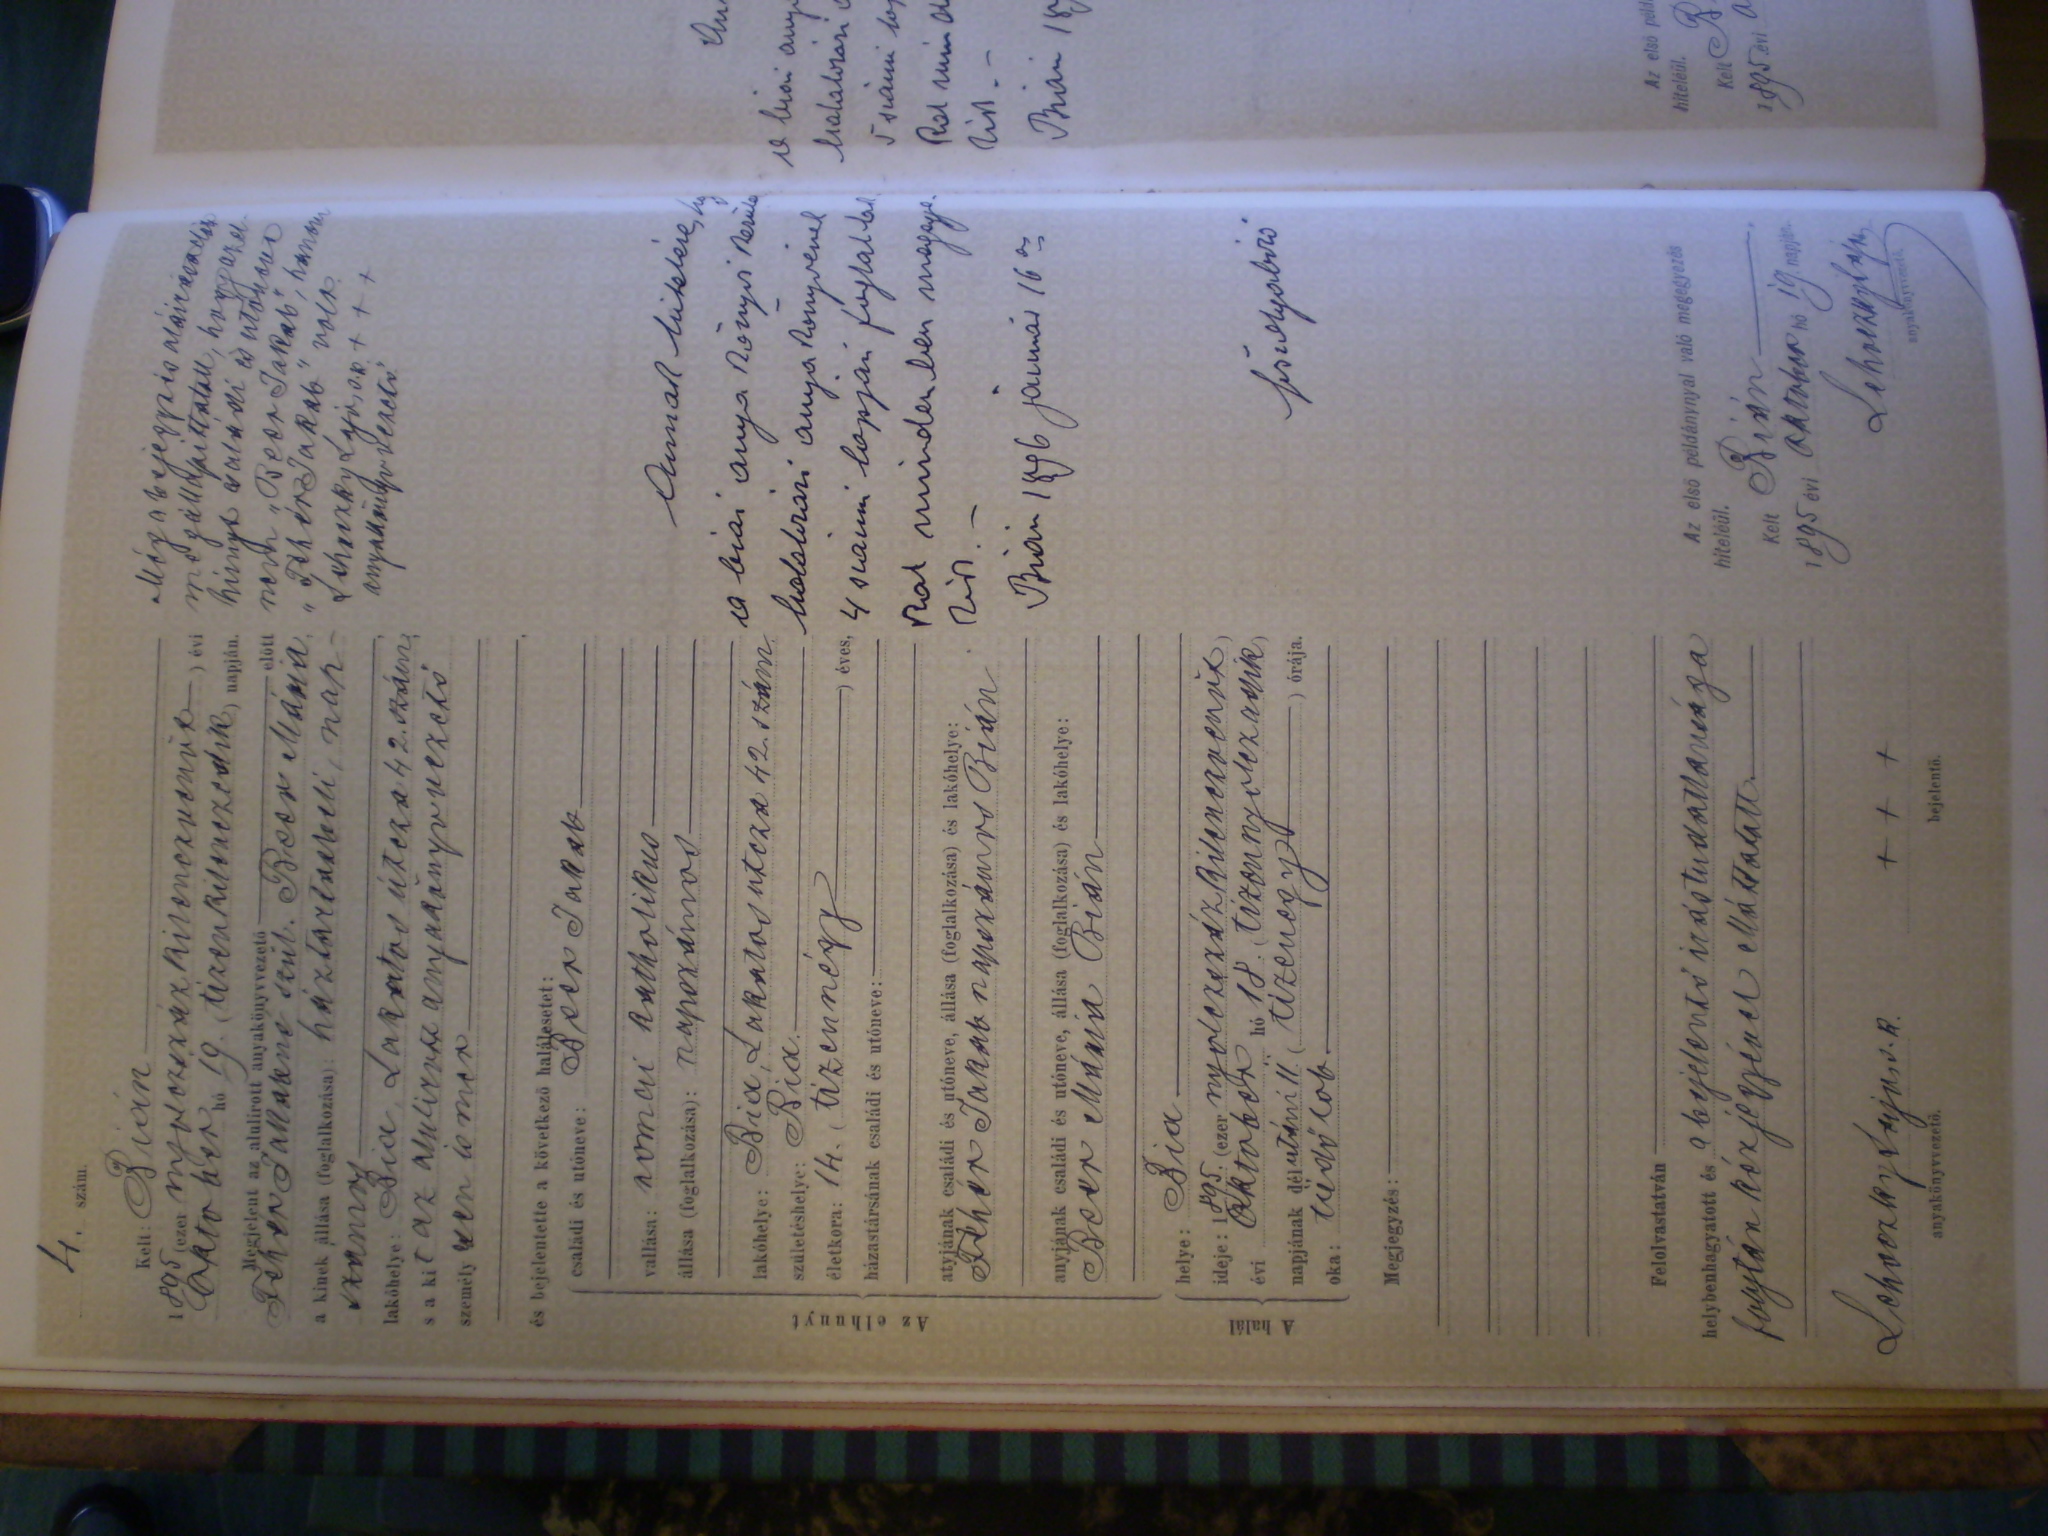 4. szám.
Kelt: Bián
1895 (ezer nyolczszázkilenczvenöt) évi
Október hó 19. (tizenkilenczedik) napján.
Megjelent az alulirott anyakönyvvezető előtt
Fehér Jakabné szül. Beer Mária,
a kinek állása (foglalkozása): háztartásbeli, nap-
számos
lakóhelye: Bia, Lakatos útcza 42. szám,
s a kit az alulirott anyakönyvvezető
személyesen ismer
és bejelentette a következő halálesetet:
Az elhunyt
családi és utóneve: Beer Jakab
vallása: romai katholikus
állása (foglalkozása): napszámos
lakóhelye: Bia, Lakatos utcza 42. szám,
születéshelye: Bia.
életkora: 14. (tizennégy) éves,
házastársának családi és utóneve:
atyjának családi és utóneve, állása (foglalkozása) és lakóhelye:
Fehér Jakab napszámos Bián
anyjának családi és utóneve, állása (foglalkozása) és lakóhelye:
Beer Mária Bián
A halál
helye: Bia
ideje: 1895. (ezer nyolczszázkilenczvenöt)
évi Október hó 18. (tizennyolczadik)
napjának délutáni 11 (tizenegy) órája.
oka: tüdőlob.
Megjegyzés:
Felolvastatván
helybenhagyatott és a bejelentő irástudatlansága
folytán kézjegyével elláttatott.
Lehoczky Lajos s. k. + + +
anyakönyvvezető. bejelentő.
Még a bejegyzés aláirása előtt
megállapittatott, hogy az el-
húnyt családi és utóneve
nem "Beer Jakab", hanem
"Fehér Jakab" volt.
Lehoczky Lajos s. k. + + +
anyakönyvvezető
Annak hitelére,
a biai anya könyvi
halálozási anya könyvének
4 számi lapján foglaltak
kal mindenben megegye-
zik. –
Bián 1896 január 16án
főszolgabiró
Az első példánynyal való megegyezés
hiteléül.
Kelt Bián
1895 évi október hó 19. napján.
Lehoczky Lajos
anyakönyvvezető.
a biai
halálozási
5 számi
kal min
zik. –
Bián
Az első péld
hiteléül.
Kelt B
1895 évi